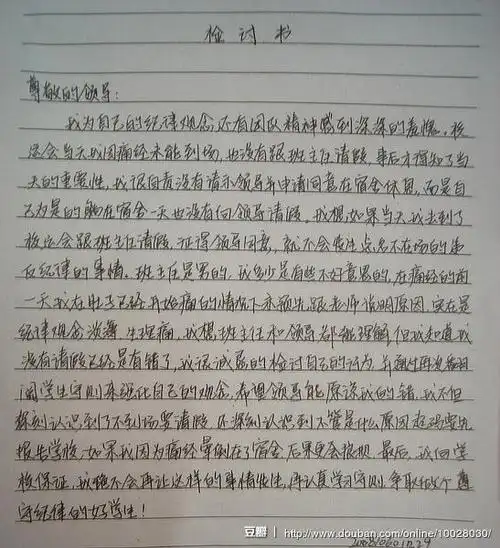 检讨书
尊敬的领导:
我为自己的纪律观念还有团队精神感到深深的羞愧。校
运会当天我因痛经未能到场,也没有跟班主任请假,事后才得知了当
天的重要性,我很自责没有请示领导并申请同意在宿舍休息,而是自
以为是的躺在宿舍一天也没有向领导请假,我想如果当天我去到了
校运会跟班主任请假,征得领导同意,就不会发生点名不在场的违
反纪律的事情。班主任是男的,我多少是有些不好意思的,在痛经的前
一天我在肚子已经开始痛的情况下亦预先跟老师说明原因,实在是
纪律观念淡薄,生理痛,我想班主任和领导都能理解,但我知道我
没有请假已经是有错了,我很诚恳的检讨自己的行为,并通过再次翻
阅学生守则来强化自己的观念,希望领导能原谅我的错,我不但
深刻认识到了不到场要请假,还深刻认识到不管是什么原因都要
报告学校,如果我因为痛经晕倒在了宿舍,后果更会狠狈。最后,我向学
校保证,我绝不会再让这样的事情发生,再认真学习守则,争取做个遵
守纪律的好学生!
豆瓣 http://www.douban.com/online/10028030/